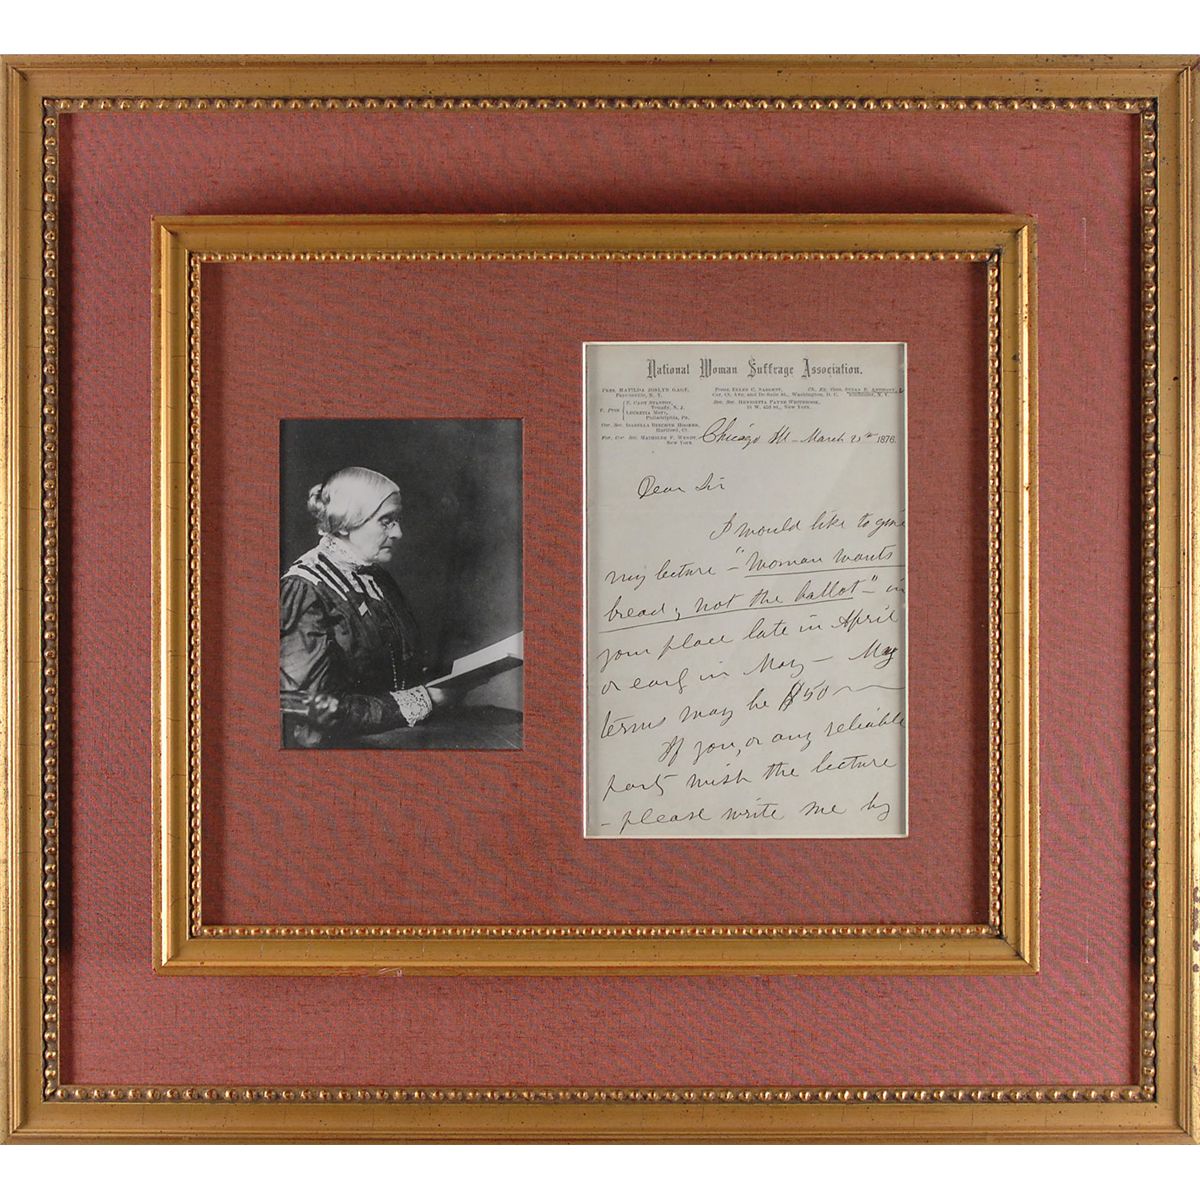 National Woman Suffrage Association.
Pres. MATILDA JOSLYN GAGE,
Fayetteville, N. Y.
V. Pres. E. CADY STANTON,
Tenafly, N. J.
LUCRETIA MOTT,
Philadelphia, Pa.
Cor. Sec. ISABELLA BEECHER HOOKER,
Hartford, Ct.
For. Cor. Sec. MATHILDE F. WENDT,
New York
ELLEN C. SARGENT,
Cor. Ave. and De Sales St., Washington, D. C.
Rec. Sec. HENRIETTA PAYNE WESTBROOK,
St., New York.
Ch. Ex. Com. SUSAN B. ANTHONY,
Rochester, N. Y.
Chicago Ill - March 1876
Dear Sir
I would like to give
my lecture - "Woman wants
bread, not the ballot" - in
your place late in April
or early in May - My
terms may be $50
If you, or any reliable
party wish the lecture
- please write me by